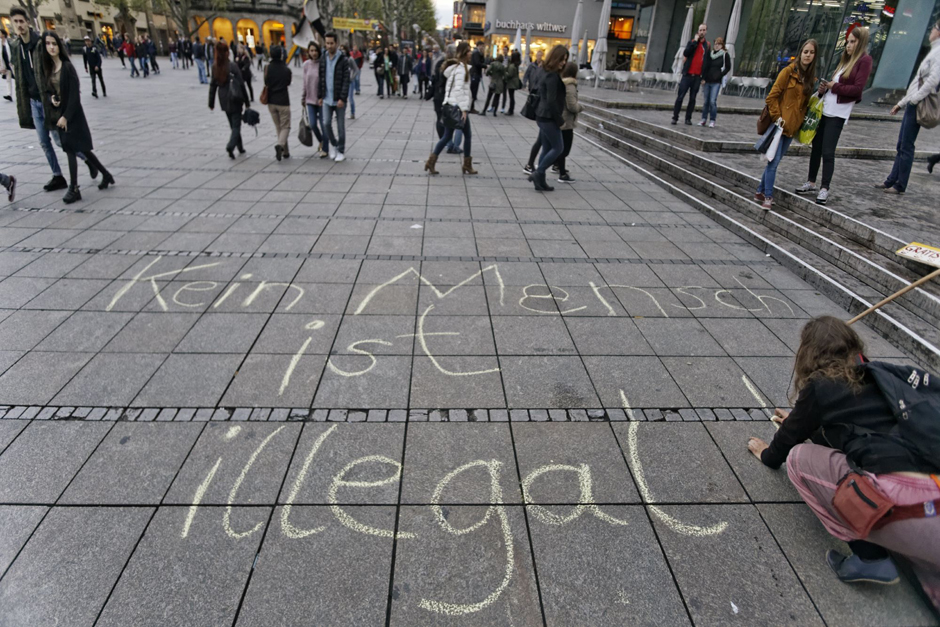 buchhaus wittwer
GRATIS
Kein Mensch
ist
illegal